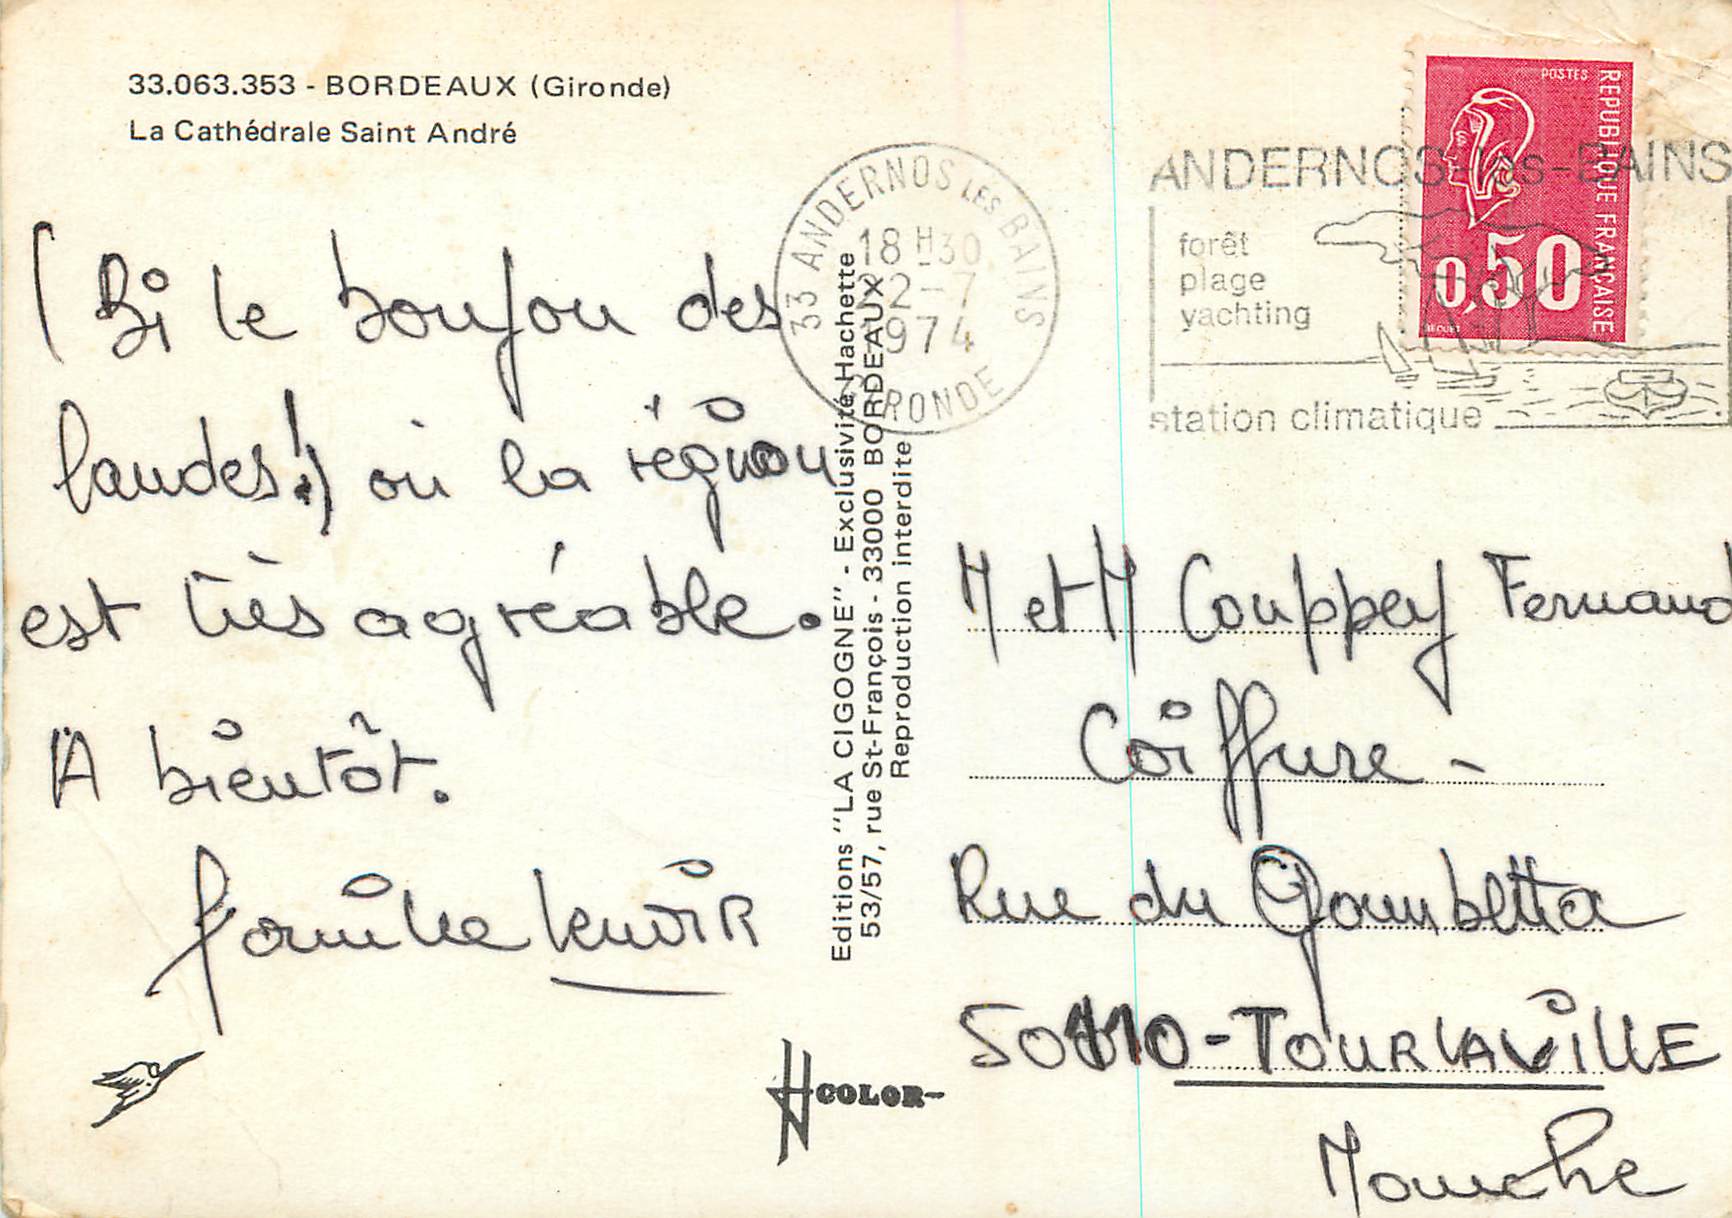 33.063.353 - BORDEAUX (Gironde)
La Cathédrale Saint André
(Bi le boujou des
landes!) où la région
est très agréable.
A bientôt.
famille lenoir
Editions "LA CIGOGNE" - Exclusivité Hachette
53/57, rue St-François - 33000 BORDEAUX
Reproduction interdite
COLOR
33 ANDERNOS LES BAINS
18 H30
22-7
1974
GIRONDE
ANDERNOS-les-BAINS
forêt
plage
yachting
station climatique
POSTES
REPUBLIQUE FRANÇAISE
0,50
BEQUET
M et M Couppey Fernand
Coiffure -
Rue du Gambetta
50110-TOURLAVILLE
Manche